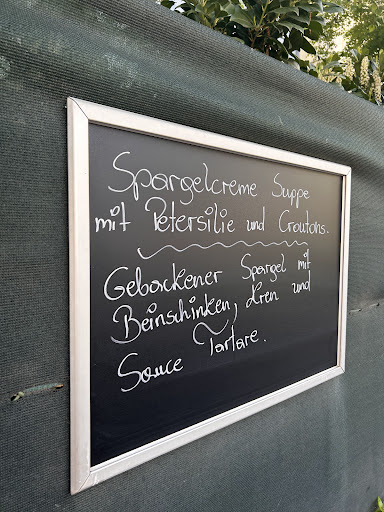 Spargelcreme Suppe
mit Petersilie und Croutons.
Gebackener Spargel mit
Beinschinken, Kren und
Sauce Tartare.